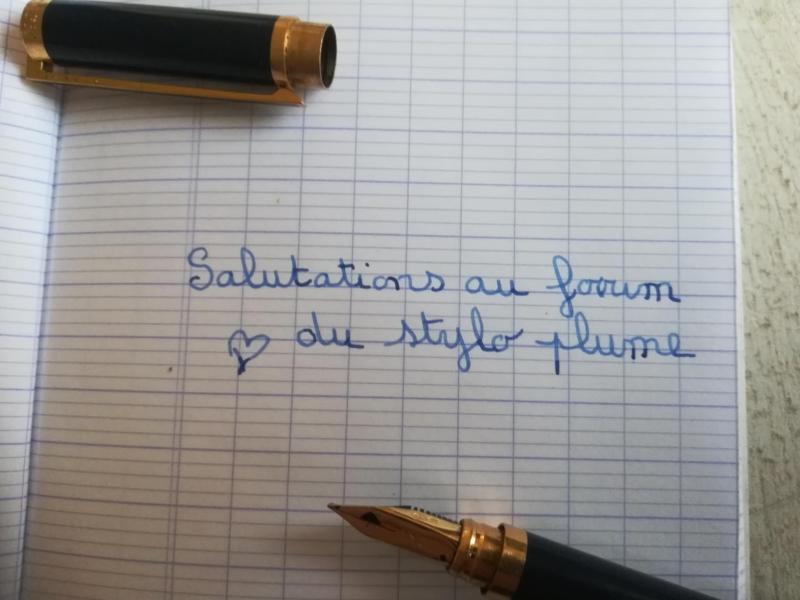 Salutations au forum
du stylo plume